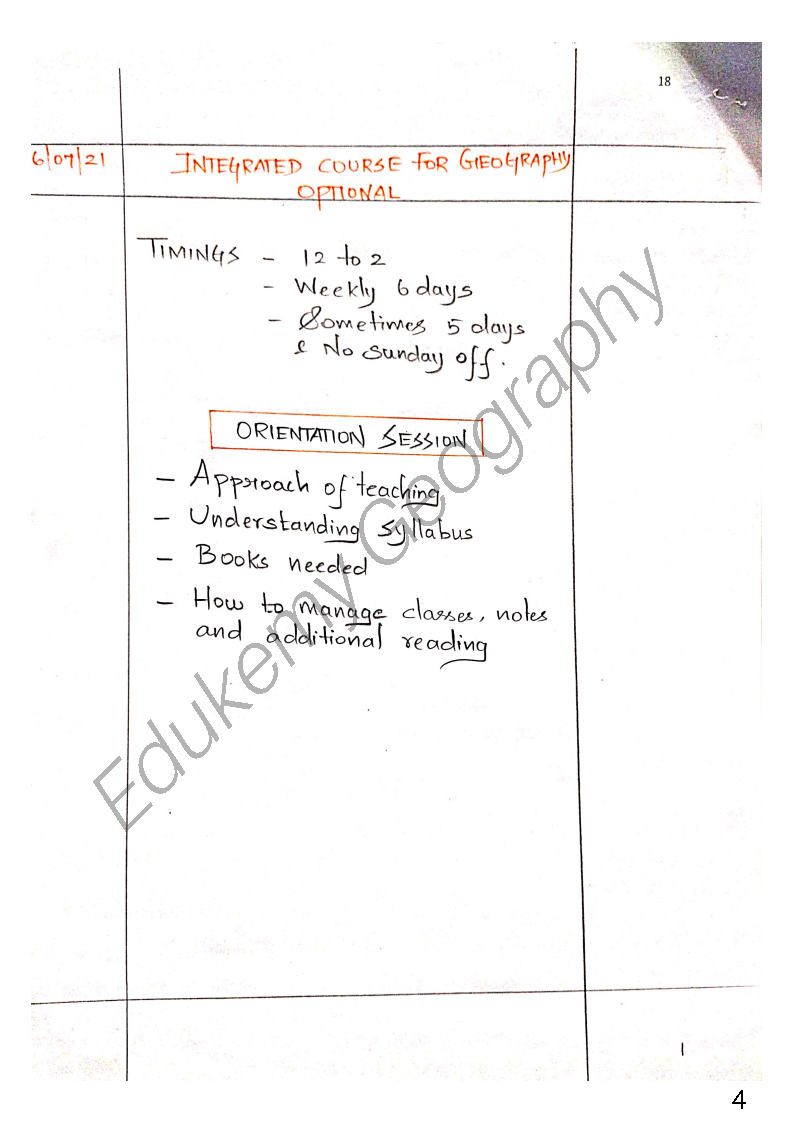 18
6/07/21
INTEGRATED COURSE FOR GEOGRAPHY
OPTIONAL
TIMINGS - 12 to 2
- Weekly 6 days
- Sometimes 5 days
& No Sunday off.
ORIENTATION SESSION
- Approach of teaching
- Understanding Syllabus
- Books needed
- How to manage classes, notes
and additional reading
Edukemy Geography
1
4